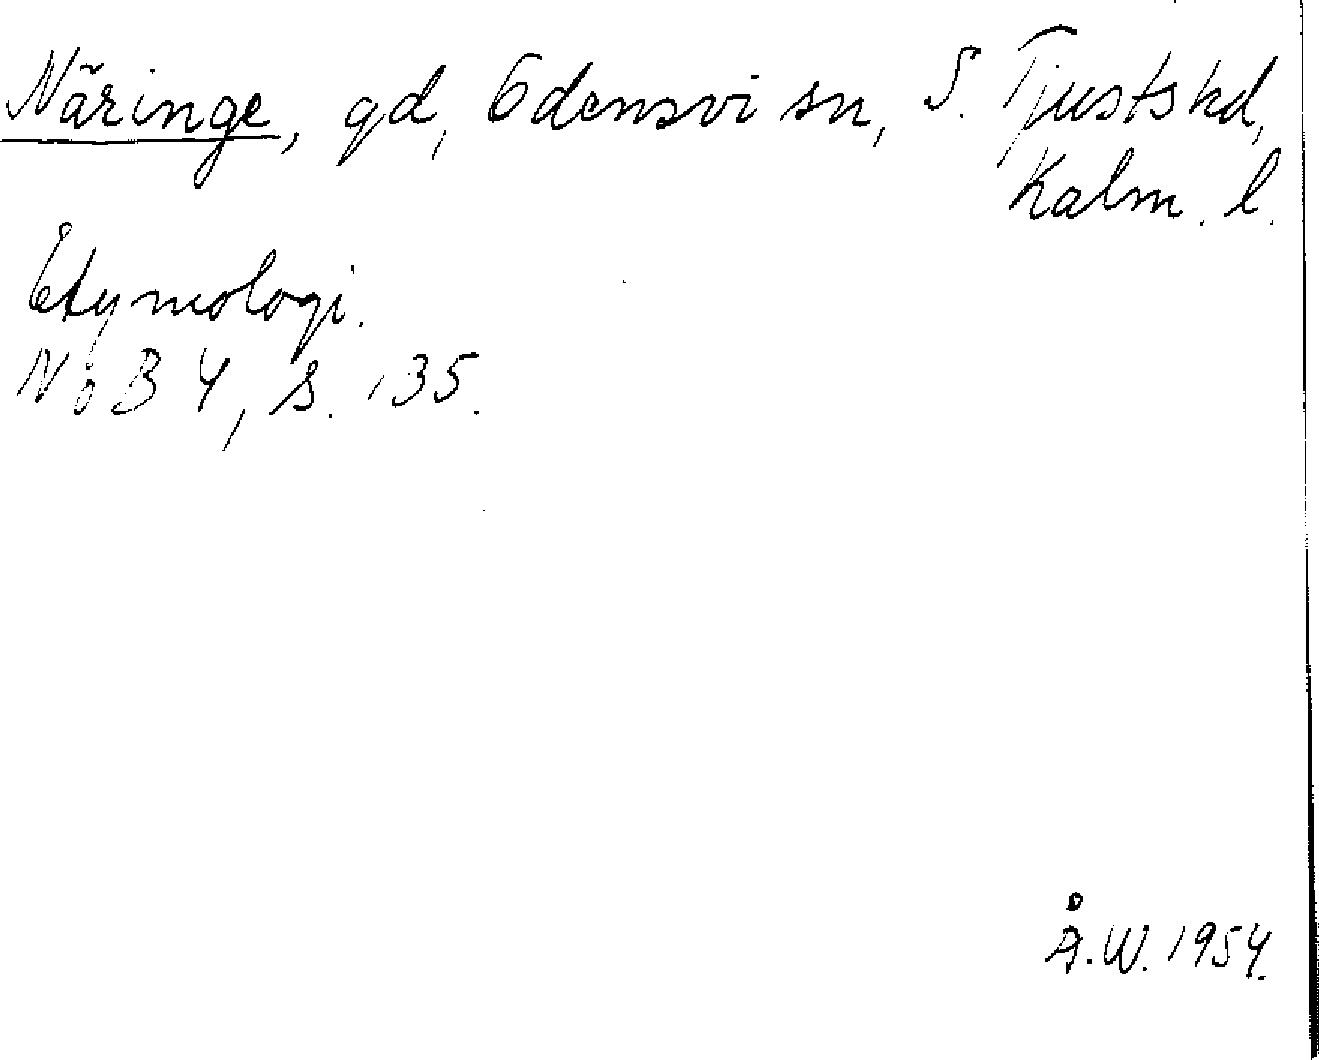 Näringe, gd, Edensvi sn, S. Tjusts hd,
Kalm. l.
Etymologi.
NoB 4, s. 135.
Å.W. 1954.